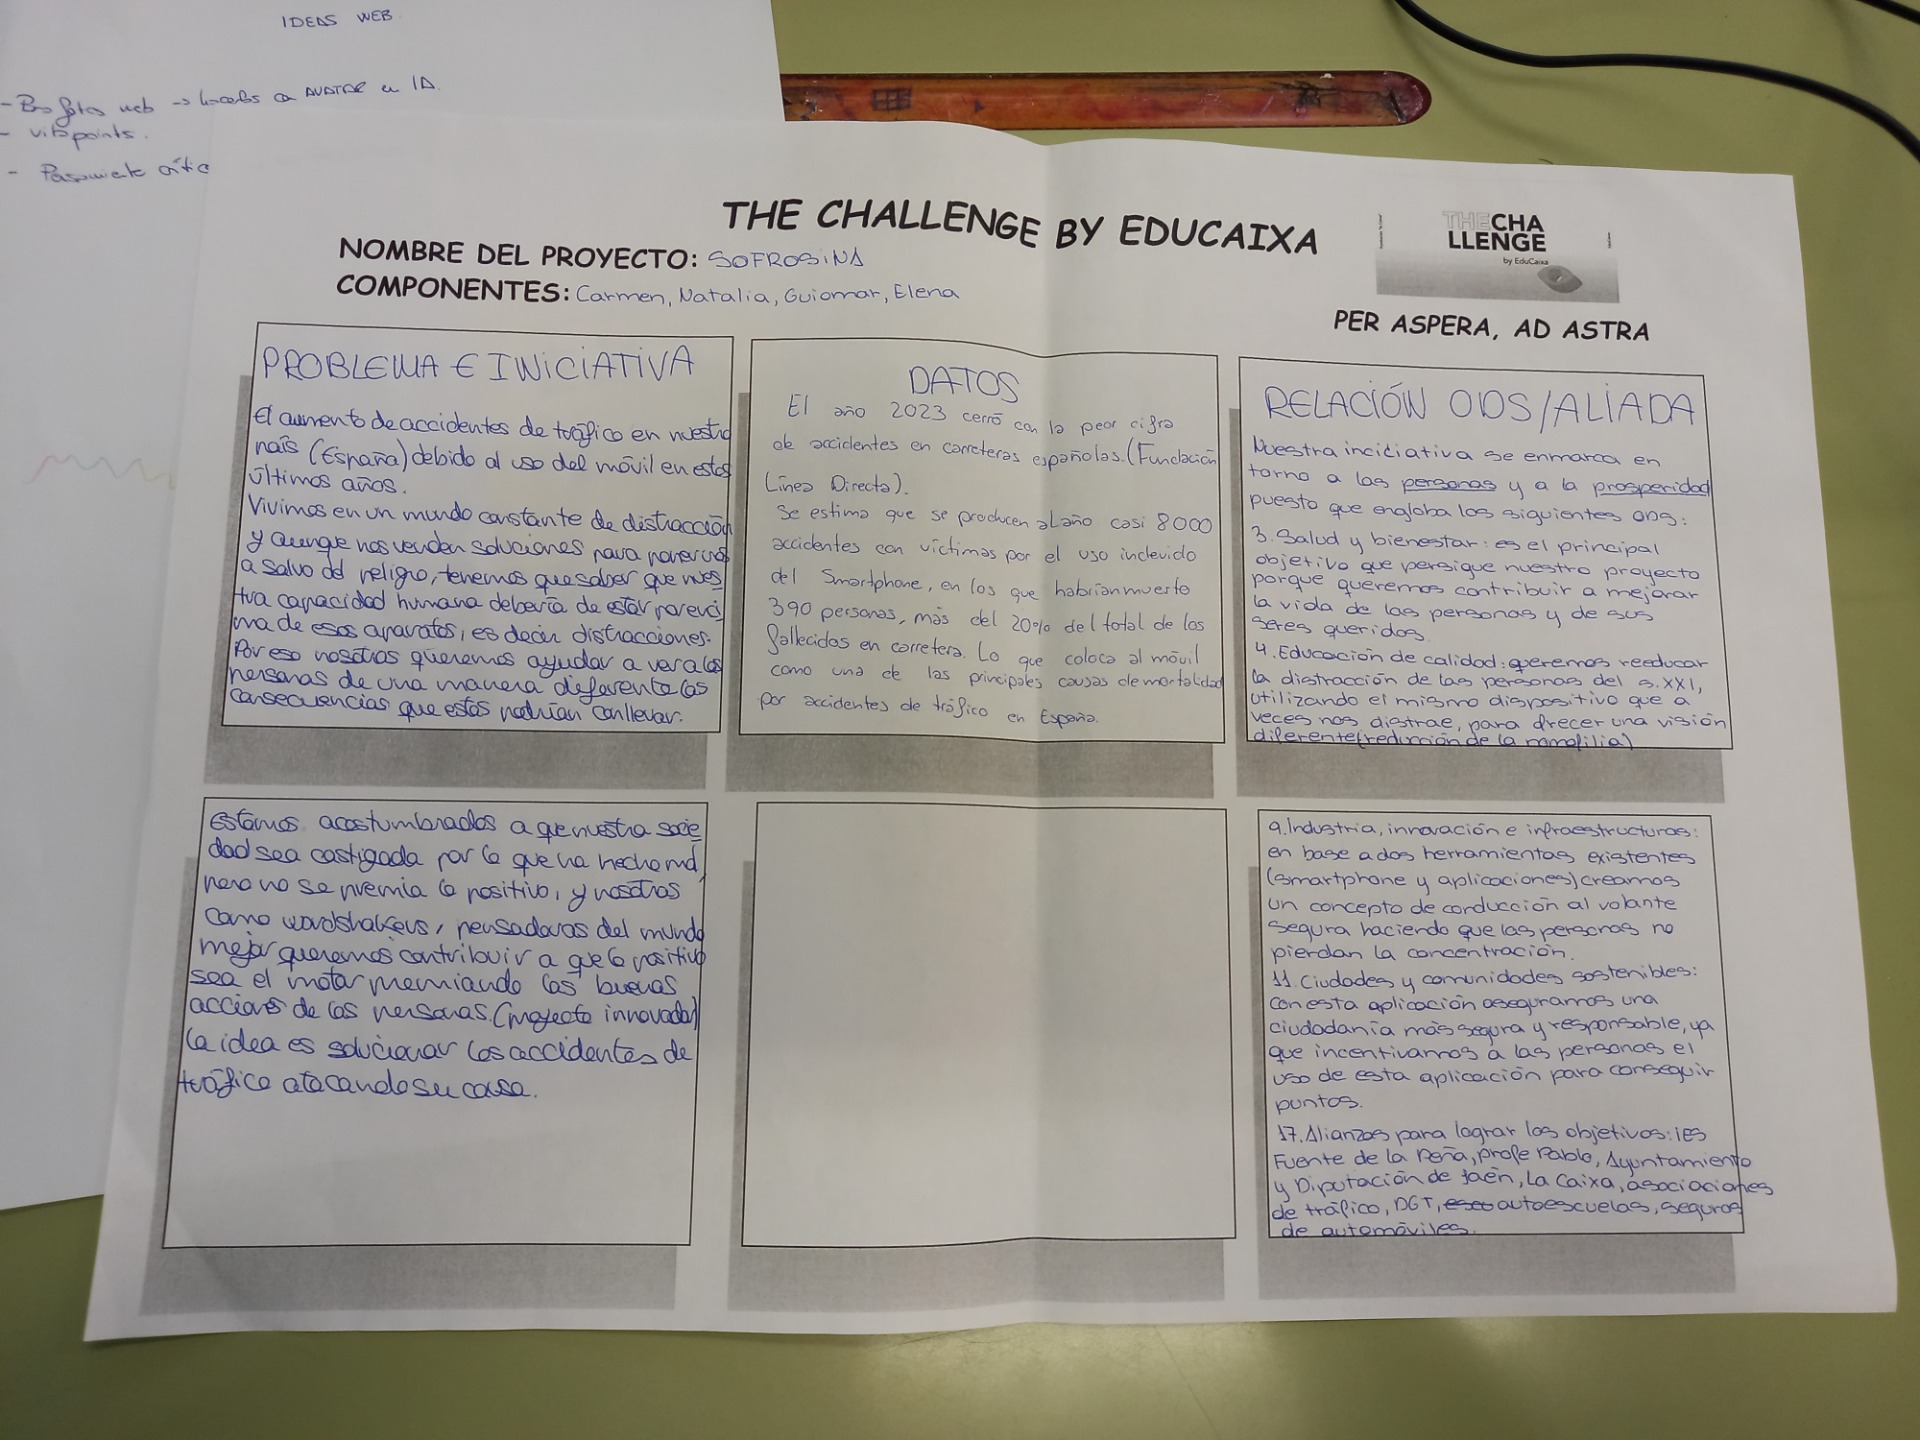 IDEAS WEB
web -> hacerlos con AVATAR en IA.
THE CHALLENGE BY EDUCAIXA
THE CHA
LLENGE
by EduCaixa
NOMBRE DEL PROYECTO: SOFROSINA
COMPONENTES: Carmen, Natalia, Guiomar, Elena
PER ASPERA, AD ASTRA
PROBLEMA E INICIATIVA
El aumento de accidentes de tráfico en nuestro
país (España) debido al uso del móvil en estos
últimos años.
Vivimos en un mundo constante de distracción
y aunque nos venden soluciones para ponernos
a salvo del peligro, tenemos que saber que nues
tra capacidad humana debería de estar por enci
ma de esos aparatos, es decir distracciones.
Por eso nosotras queremos ayudar a ver a las
personas de una manera diferente las
consecuencias que estas podrían conllevar.
DATOS
El año 2023 cerró con la peor cifra
de accidentes en carreteras españolas. (Fundación
Línea Directa).
Se estima que se producen al año casi 8000
accidentes con víctimas por el uso indevido
del Smartphone, en los que habrían muerto
390 personas, más del 20% del total de los
fallecidos en carretera. Lo que coloca al móvil
como una de las principales causas de mortalidad
por accidentes de tráfico en España.
RELACIÓN ODS/ALIADA
Nuestra incitiativa se enmarca en
torno a las personas y a la prosperidad
puesto que engloba los siguientes ODS:
3. Salud y bienestar: es el principal
objetivo que persigue nuestro proyecto
porque queremos contribuir a mejorar
la vida de las personas y de sus
seres queridos.
4. Educación de calidad: queremos reeducar
la distracción de las personas del s.XXI,
utilizando el mismo dispositivo que a
veces nos distrae, para ofrecer una visión
diferente (reducción de la nomofilia)
Estamos acostumbrados a que nuestra socie
dad sea castigada por lo que ha hecho mal,
pero no se premia lo positivo, y nosotras
como wordshakers, pensadoras del mundo
mejor queremos contribuir a que lo positivo
sea el motor premiando las buenas
acciones de las personas. (proyecto innovador)
La idea es solucionar los accidentes de
tráfico atacando su causa.
9. Industria, innovación e infraestructuras:
en base a dos herramientas existentes
(smartphone y aplicaciones) creamos
un concepto de conducción al volante
segura haciendo que las personas no
pierdan la concentración.
11. Ciudades y comunidades sostenibles:
con esta aplicación aseguramos una
ciudadanía más segura y responsable, ya
que incentivamos a las personas el
uso de esta aplicación para conseguir
puntos.
17. Alianzas para lograr los objetivos: IES
Fuente de la Peña, profe Pablo, Ayuntamiento
y Diputación de Jaén, La Caixa, asociaciones
de tráfico, DGT, autoescuelas, seguros
de automóviles.